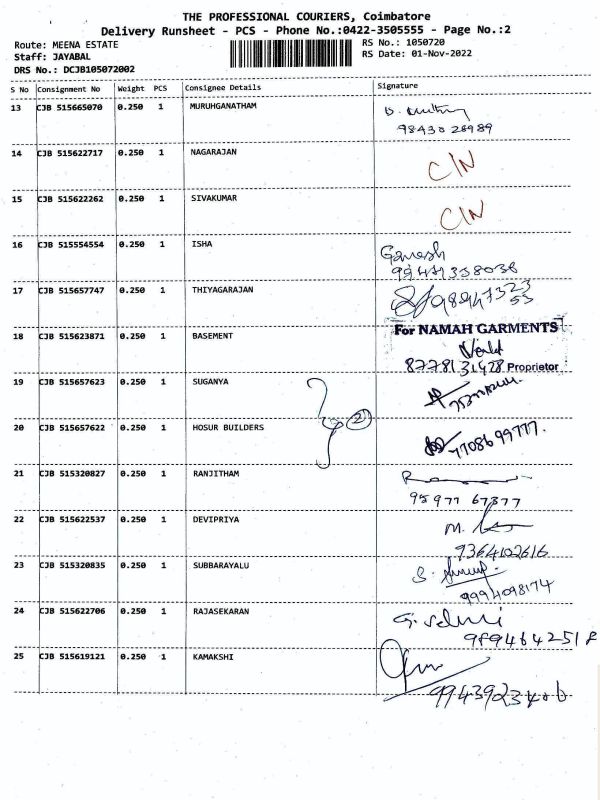 THE PROFESSIONAL COURIERS, Coimbatore
Delivery Runsheet - PCS - Phone No.:0422-3505555 - Page No.:2
Route: MEENA ESTATE
RS No.: 1050720
Staff: JAYABAL
RS Date: 01-Nov-2022
DRS No.: DCJB105072002
S No Consignment No Weight PCS Consignee Details Signature
13 CJB 515665070 0.250 1 MURUHGANATHAM
98430 28989
14 CJB 515622717 0.250 1 NAGARAJAN C/N
15 CJB 515622262 0.250 1 SIVAKUMAR C/N
16 CJB 515554554 0.250 1 ISHA Ganesh
17 CJB 515657747 0.250 1 THIYAGARAJAN
For NAMAH GARMENTS
18 CJB 515623871 0.250 1 BASEMENT
8778131428 Proprietor
19 CJB 515657623 0.250 1 SUGANYA
2
20 CJB 515657622 0.250 1 HOSUR BUILDERS 7708699777.
21 CJB 515320827 0.250 1 RANJITHAM
95977 67377
22 CJB 515622537 0.250 1 DEVIPRIYA
9364102616
23 CJB 515320835 0.250 1 SUBBARAYALU
9994098174
24 CJB 515622706 0.250 1 RAJASEKARAN G. Selvi
9894642518
25 CJB 515619121 0.250 1 KAMAKSHI